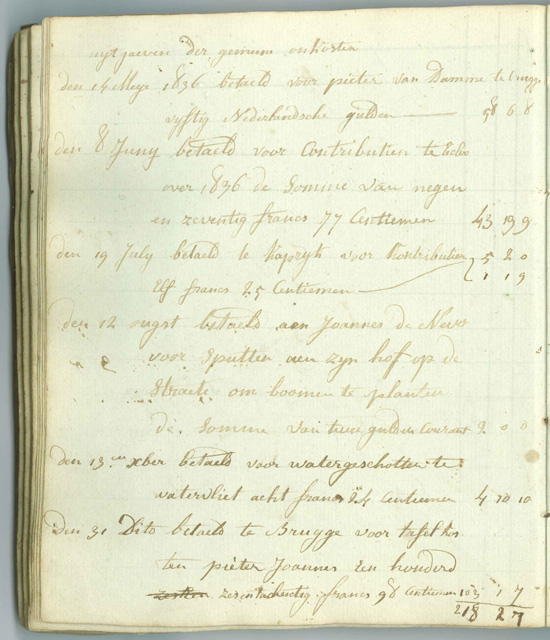 uyt geeven der gemeene onkosten
den 14 Meye 1836 betaeld voor pieter van Damme te brugge
vyftig Nederlandsche gulden 58 6 8
den 8 Juny betaeld voor Contributien te Eecloo
over 1836 de Somme van negen
en zeventig francs 77 Centiemen 43 19 9
den 19 July betaeld te Kapryk voor Kontributien 5 2 0
Elf francs 25 Centiemen 1 1 9
den 12 ougst betaeld aen Joannes de
voor Sputten aen zyn hof op de
Straete om boomen te planten
de Somme van twee gulden Courant 2 0 0
den 13 xber betaeld voor watergeschotten te
watervliet acht francs 24 Centiemen 4 10 10
den 31 Dito betaeld te Brugge voor tafel kos
ten pieter Joannes Een honderd
zes en tachentig francs 98 Centiemen 103 1 7
218 2 7